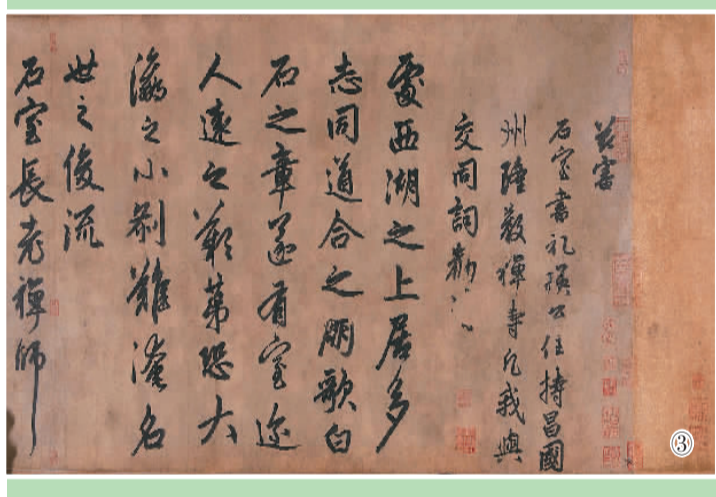 茲審
石室書記瑛公住持昌國
州隆教禪寺凡我與
交同詞勸
處西湖之上居多
志同道合之朋歌白
石之章遂有室迩
人遠之嘆第恐大
瀛之小剎難淹名
世之俊流
石室長老禪師
③